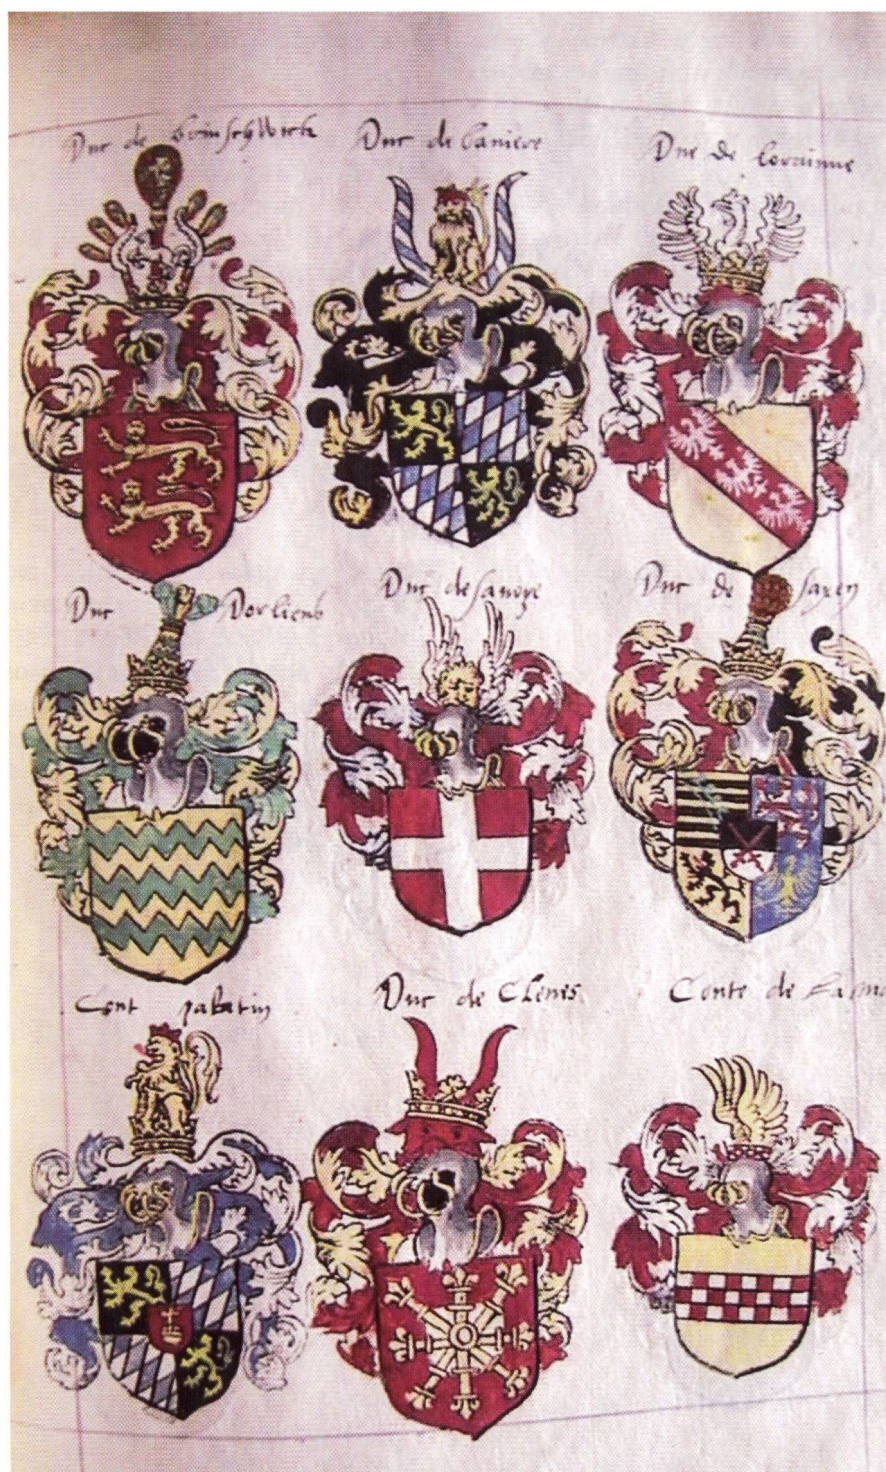 Duc de brinschwich
Duc de baniere
Duc de Lorainne
Duc Dorlienb
Duc de sanoye
Duc de saxen
Cont palatin
Duc de Cleues
Conte de